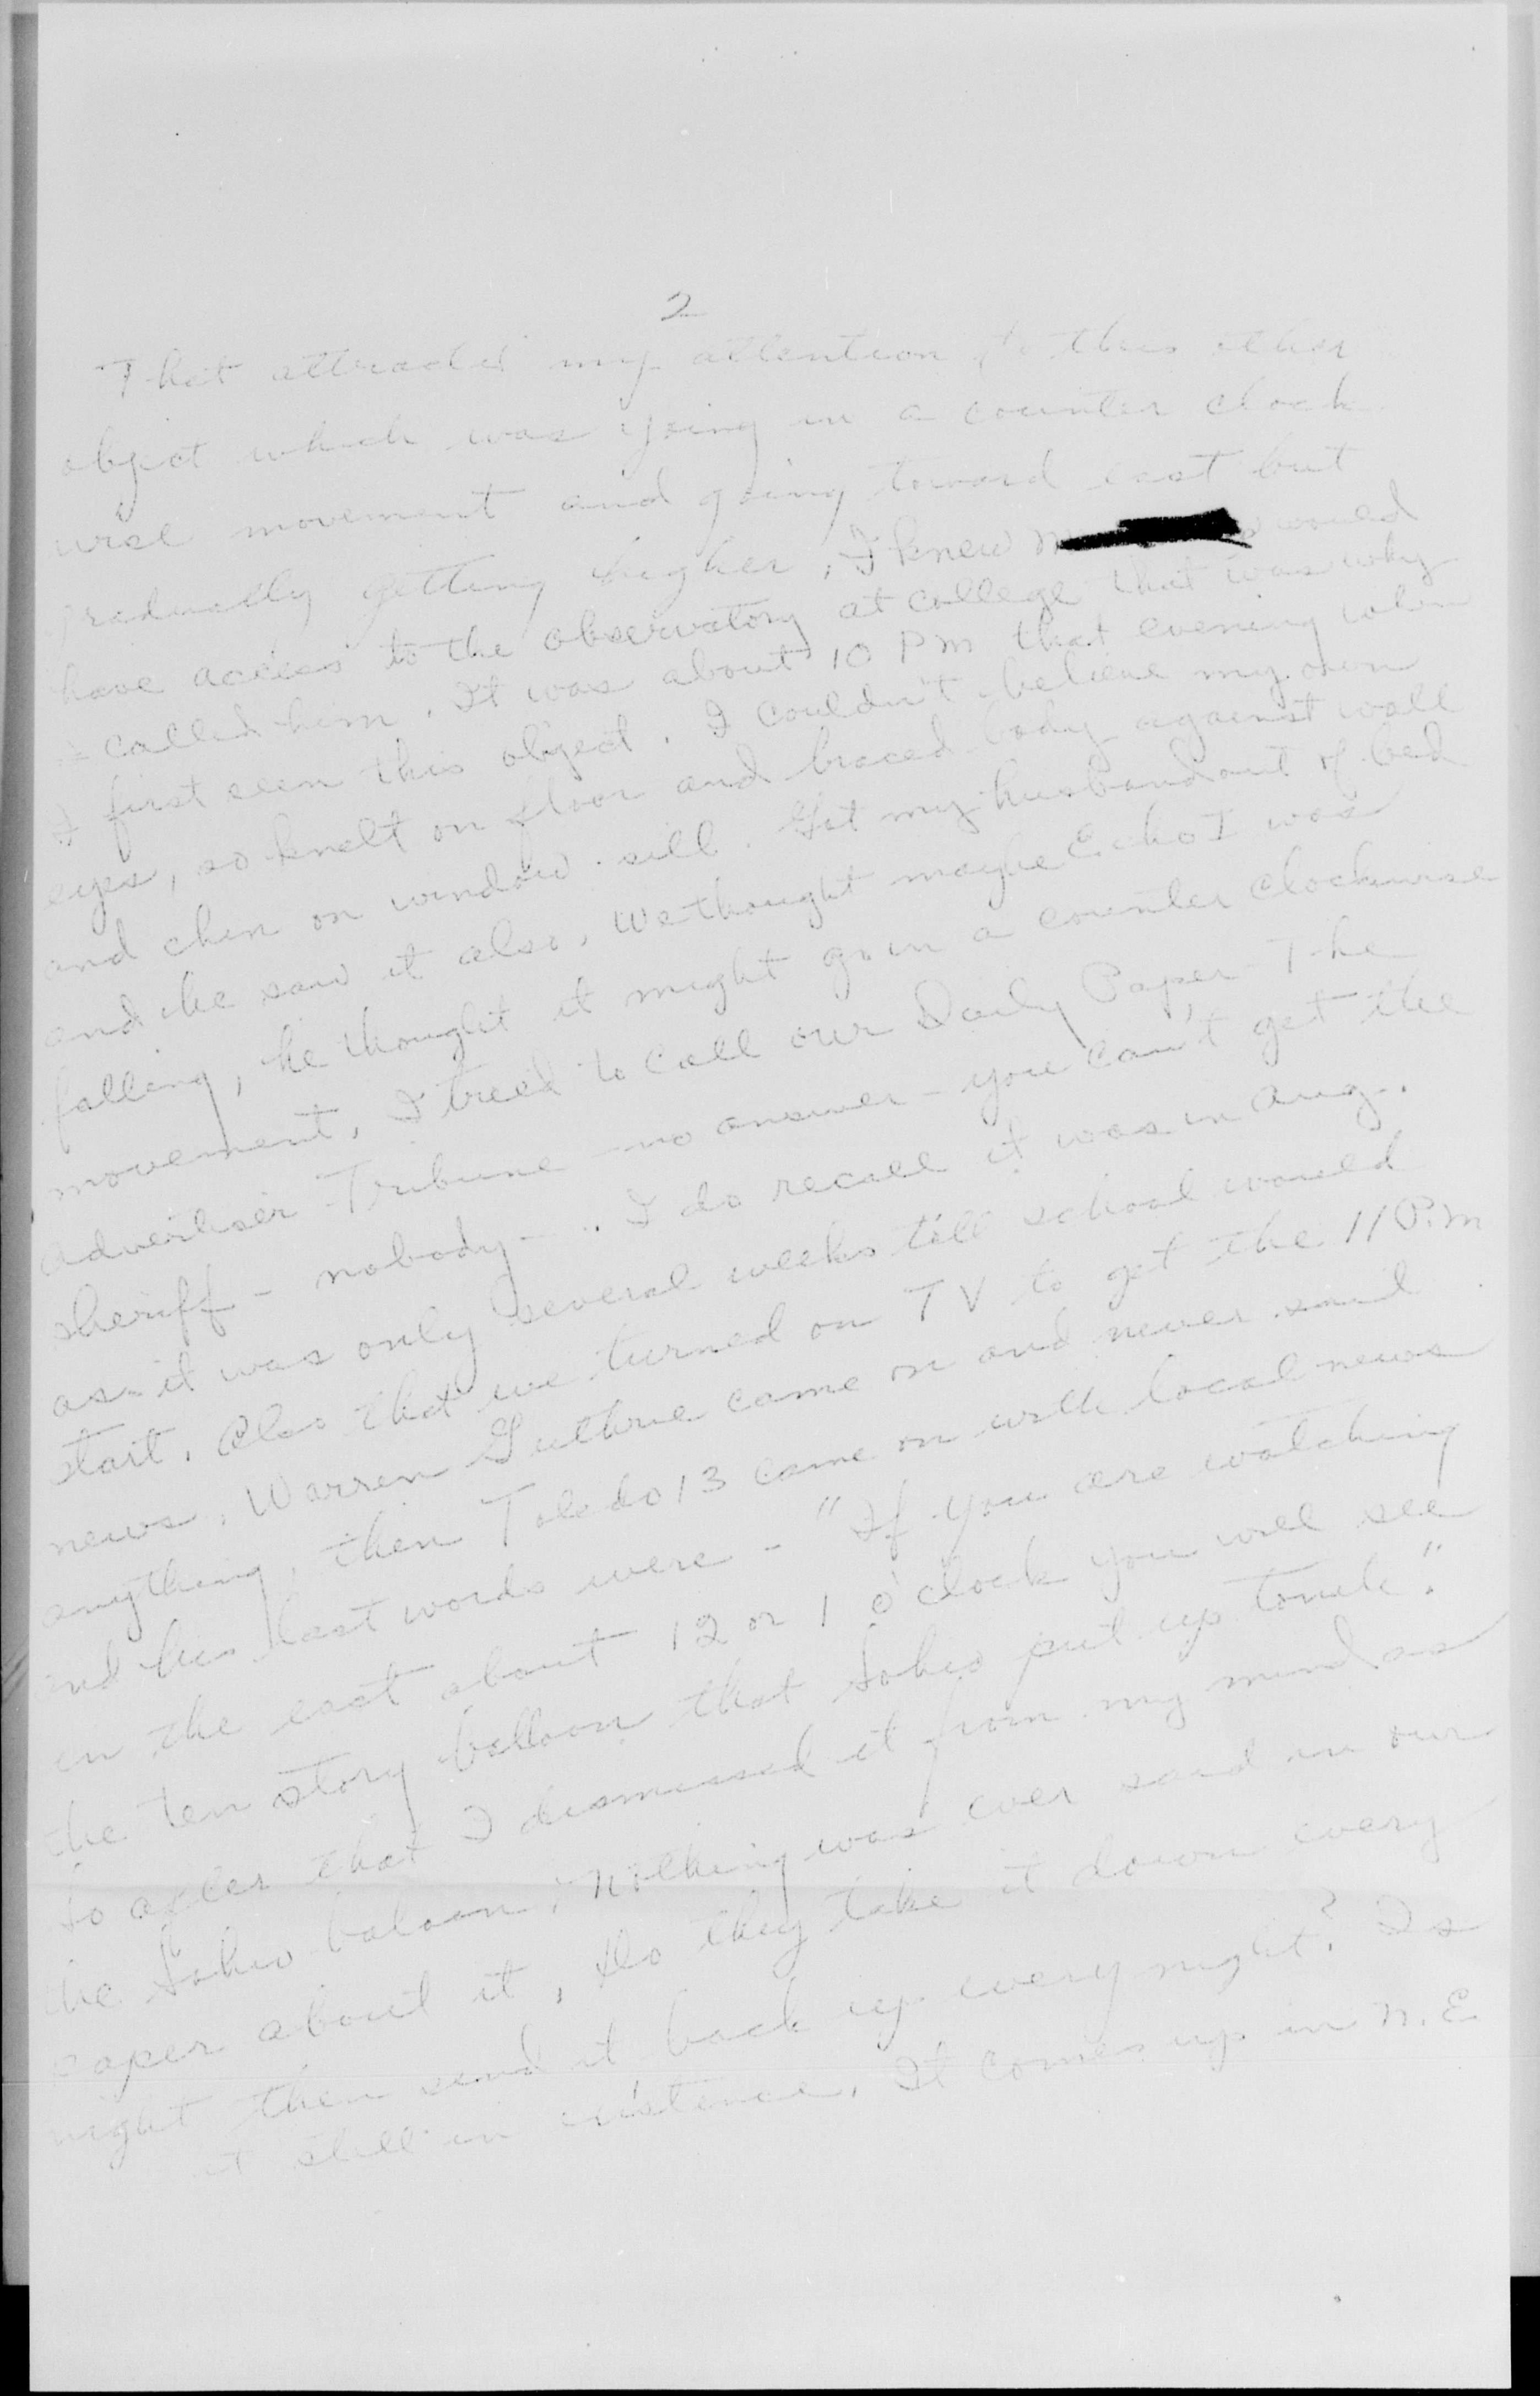 2
That attracted my attention to this other
object which was going in a counter clock
wise movement and going toward east but
gradually getting higher, I knew would
have access to the observatory at college that was why
I called him. It was about 10 PM that evening when
I first seen this object. I couldn't believe my own
eyes, so knelt on floor and braced body against wall
and chin on window sill. Got my husband out of bed
and he saw it also. We thought maybe Echo I was
falling, he thought it might go in a counter clockwise
movement. I tried to call our Daily Paper - The
Advertiser - Tribune - no answer - you can't get the
sheriff - nobody - .. I do recall it was in Aug.
as it was only several weeks till school would
start. Also that we turned on TV to get the 11 P.M
news. Warren Guthrie came on and never said
anything, then Toledo 13 came on with local news
and his last words were - "If you are watching
in the east about 12 or 1 o'clock you will see
the ten story balloon that Sohio put up tonite."
So after that I dismissed it from my mind as
the Sohio baloon, nothing was ever said in our
paper about it, Do they take it down every
night then send it back up every night? Is
it still in existence. It comes up in N.E